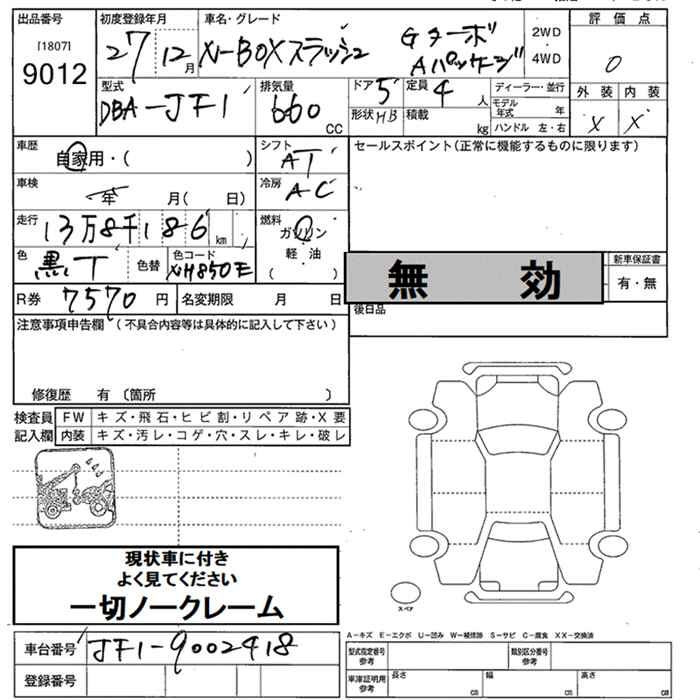 出品番号 初度登録年月 車名・グレード 評価点
[1807]
9012
27年12月 N-BOXスラッシュ Gターボ Aパッケージ
2WD
4WD
0
型式 DBA-JF1
排気量 660 CC
ドア 5 定員 4 人
形状 HB 積載 kg
ディーラー・並行
モデル年式 年
ハンドル 左・右
外装 内装
X X
車歴 自家用・( )
シフト AT
セールスポイント(正常に機能するものに限ります)
車検 年 月( 日)
冷房 AC
走行 13万8千186 km
燃料 ガソリン
軽油
( )
色 黒T 色替 色コード NH850E
無効
新車保証書
有・無
R券 7570円 名変期限 月 日
後日品
注意事項申告欄(不具合内容等は具体的に記入して下さい)
修復歴 有〔箇所 〕
検査員 FW キズ・飛石・ヒビ割・リペア跡・X要
記入欄 内装 キズ・汚レ・コゲ・穴・スレ・キレ・破レ
現状車に付き
よく見てください
一切ノークレーム
スペア
A-キズ E-エクボ U-凹み W-補修跡 S-サビ C-腐食 XX-交換済
車台番号 JF1-9002418
型式指定番号 参考 類別区分番号 参考
登録番号
車庫証明用 参考 長さ cm 幅 cm 高さ cm